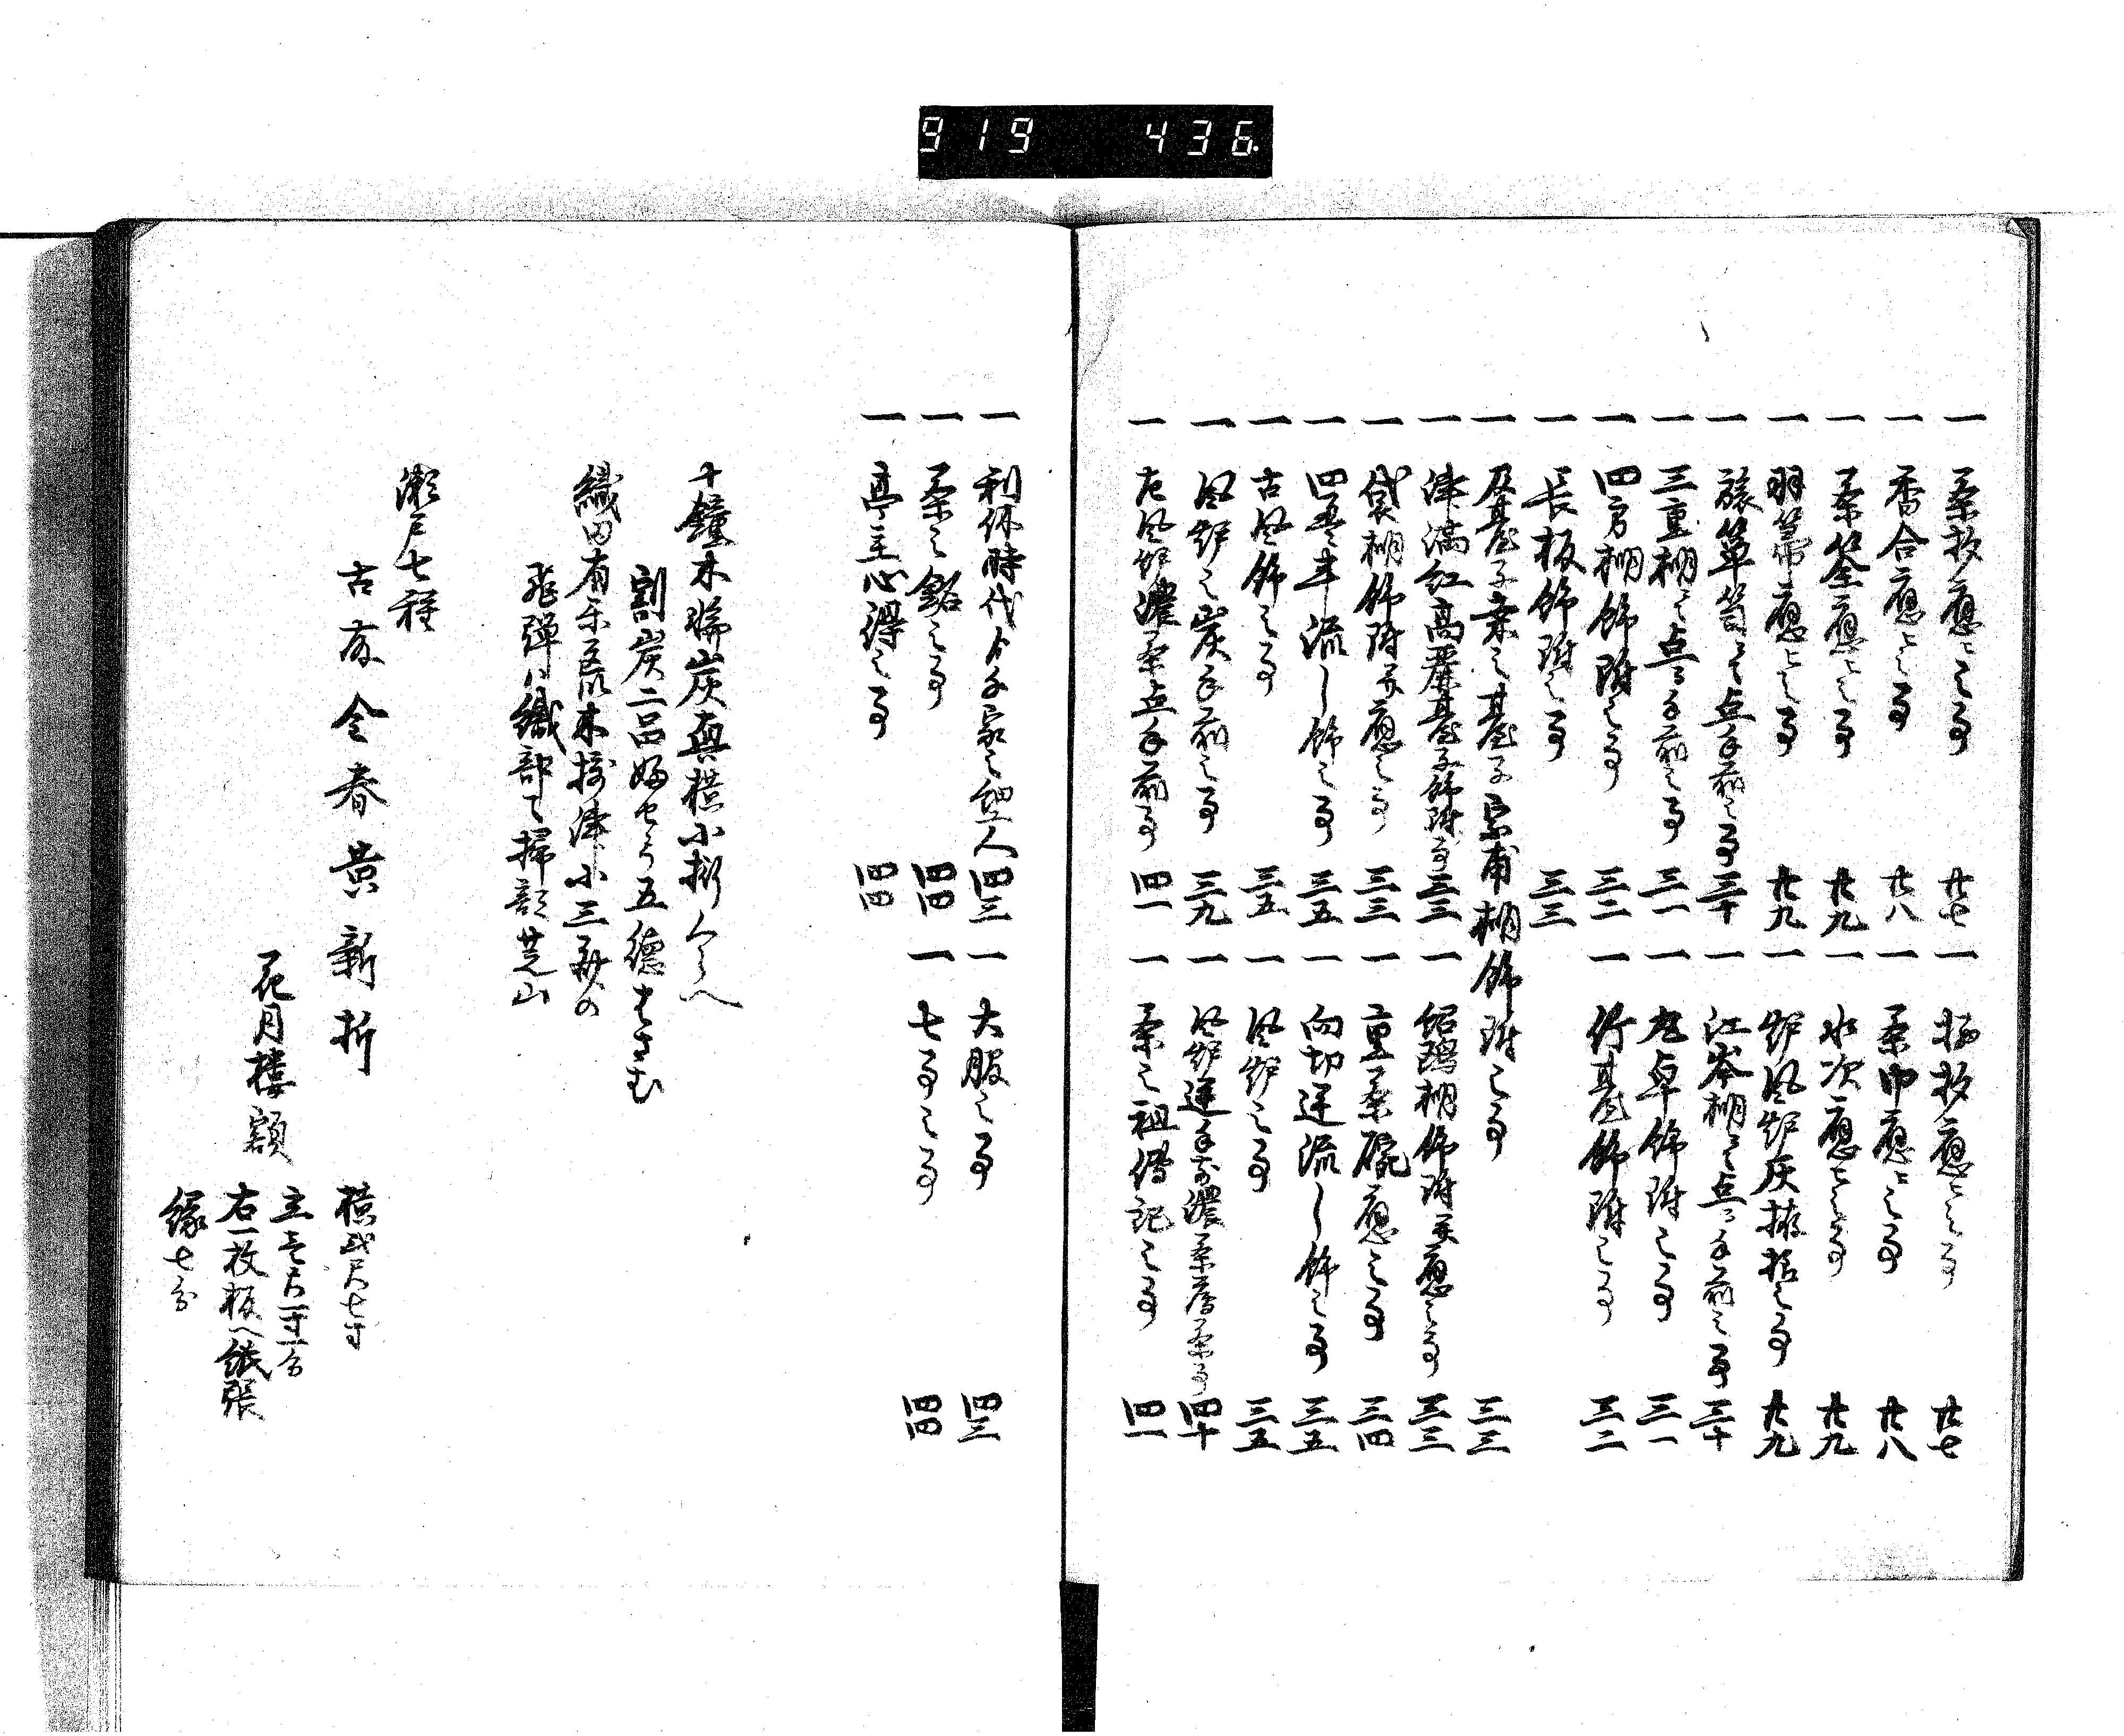 919 436
一 茶杓應シ之事 廿七
一 香合應シ之事 廿八
一 茶筌應シ之事 廿九
一 羽箒應シ之事 廿九
一 旅箪笥ニ而点手前之事 三十
一 三重棚ニ而点手前之事 三一
一 四方棚餝附之事 三二
一 長板餝附之事 三三
一 及基子 棄之基子 宗甫棚餝附之事 三三
一 高麗基子餝附事 三三
一 袋棚餝附并應之事 三三
一 四畳半流し餝之事 三五
一 古風餝之事 三五
一 風炉之炭手前之事 三九
一 左風炉濃茶点手前事 四一
一 柄杓應シ之事 廿七
一 茶巾應シ之事 廿八
一 水次應シ之事 廿九
一 炉風炉灰 之事 廿九
一 江岑棚ニ而点手前之事 三十
一 丸卓餝附之事 三一
一 竹基餝附之事 三二
一 紹鴎棚餝附并應之事 三三
一 重茶碗應之事 三四
一 向切逆流し餝之事 三五
一 風炉之事 三五
一 風炉逆手前濃茶薄茶事 四十
一 茶之祖傳記之事 四一
一 利休時代ゟ千家之 人 四三
一 茶之銘之事 四四
一 亭主心得之事 四四
一 大服之事 四三
一 七事之事 四四
十鐘木 炭與横小
割炭二品 五徳はさむ
織田有楽 荒木摂津 小三
飛弾ハ織部て掃部芝山
瀬戸七種
古 今春黄新折
花月樓額
横弐尺七寸
立壱尺一寸一分
右一枚板へ紙張
縁七分